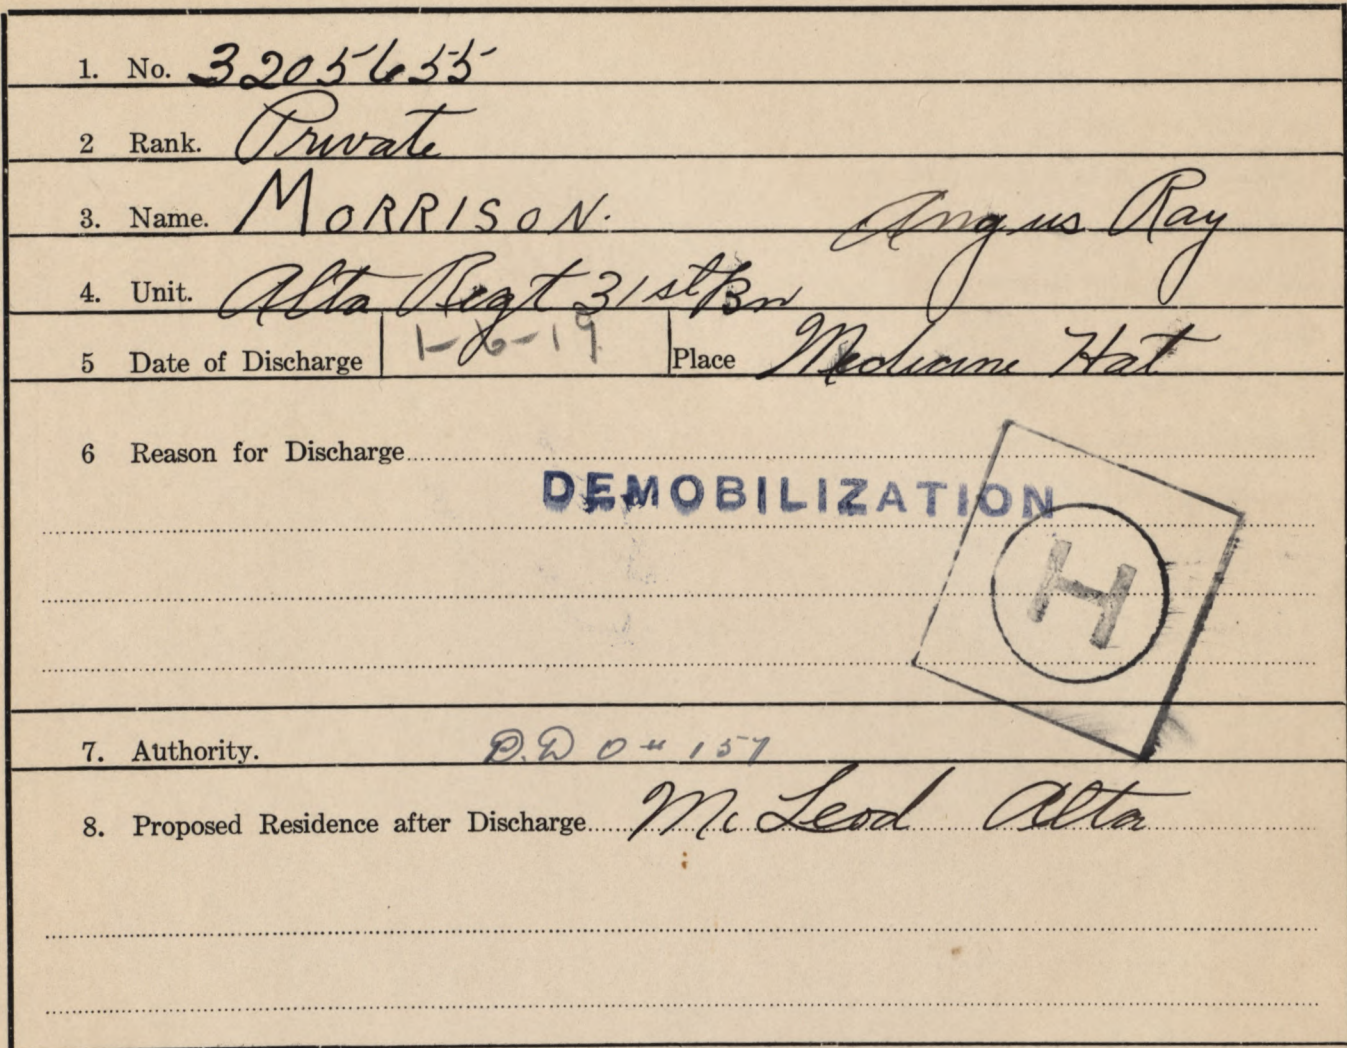 1. No. 3205655
2 Rank. Private
3. Name. MORRISON. Angus Ray
4. Unit. Alta Regt 31st Bn
5 Date of Discharge 1-6-19 Place Medicine Hat
6 Reason for Discharge
DEMOBILIZATION
H
7. Authority. D.D O 157
8. Proposed Residence after Discharge Mc Leod Alta